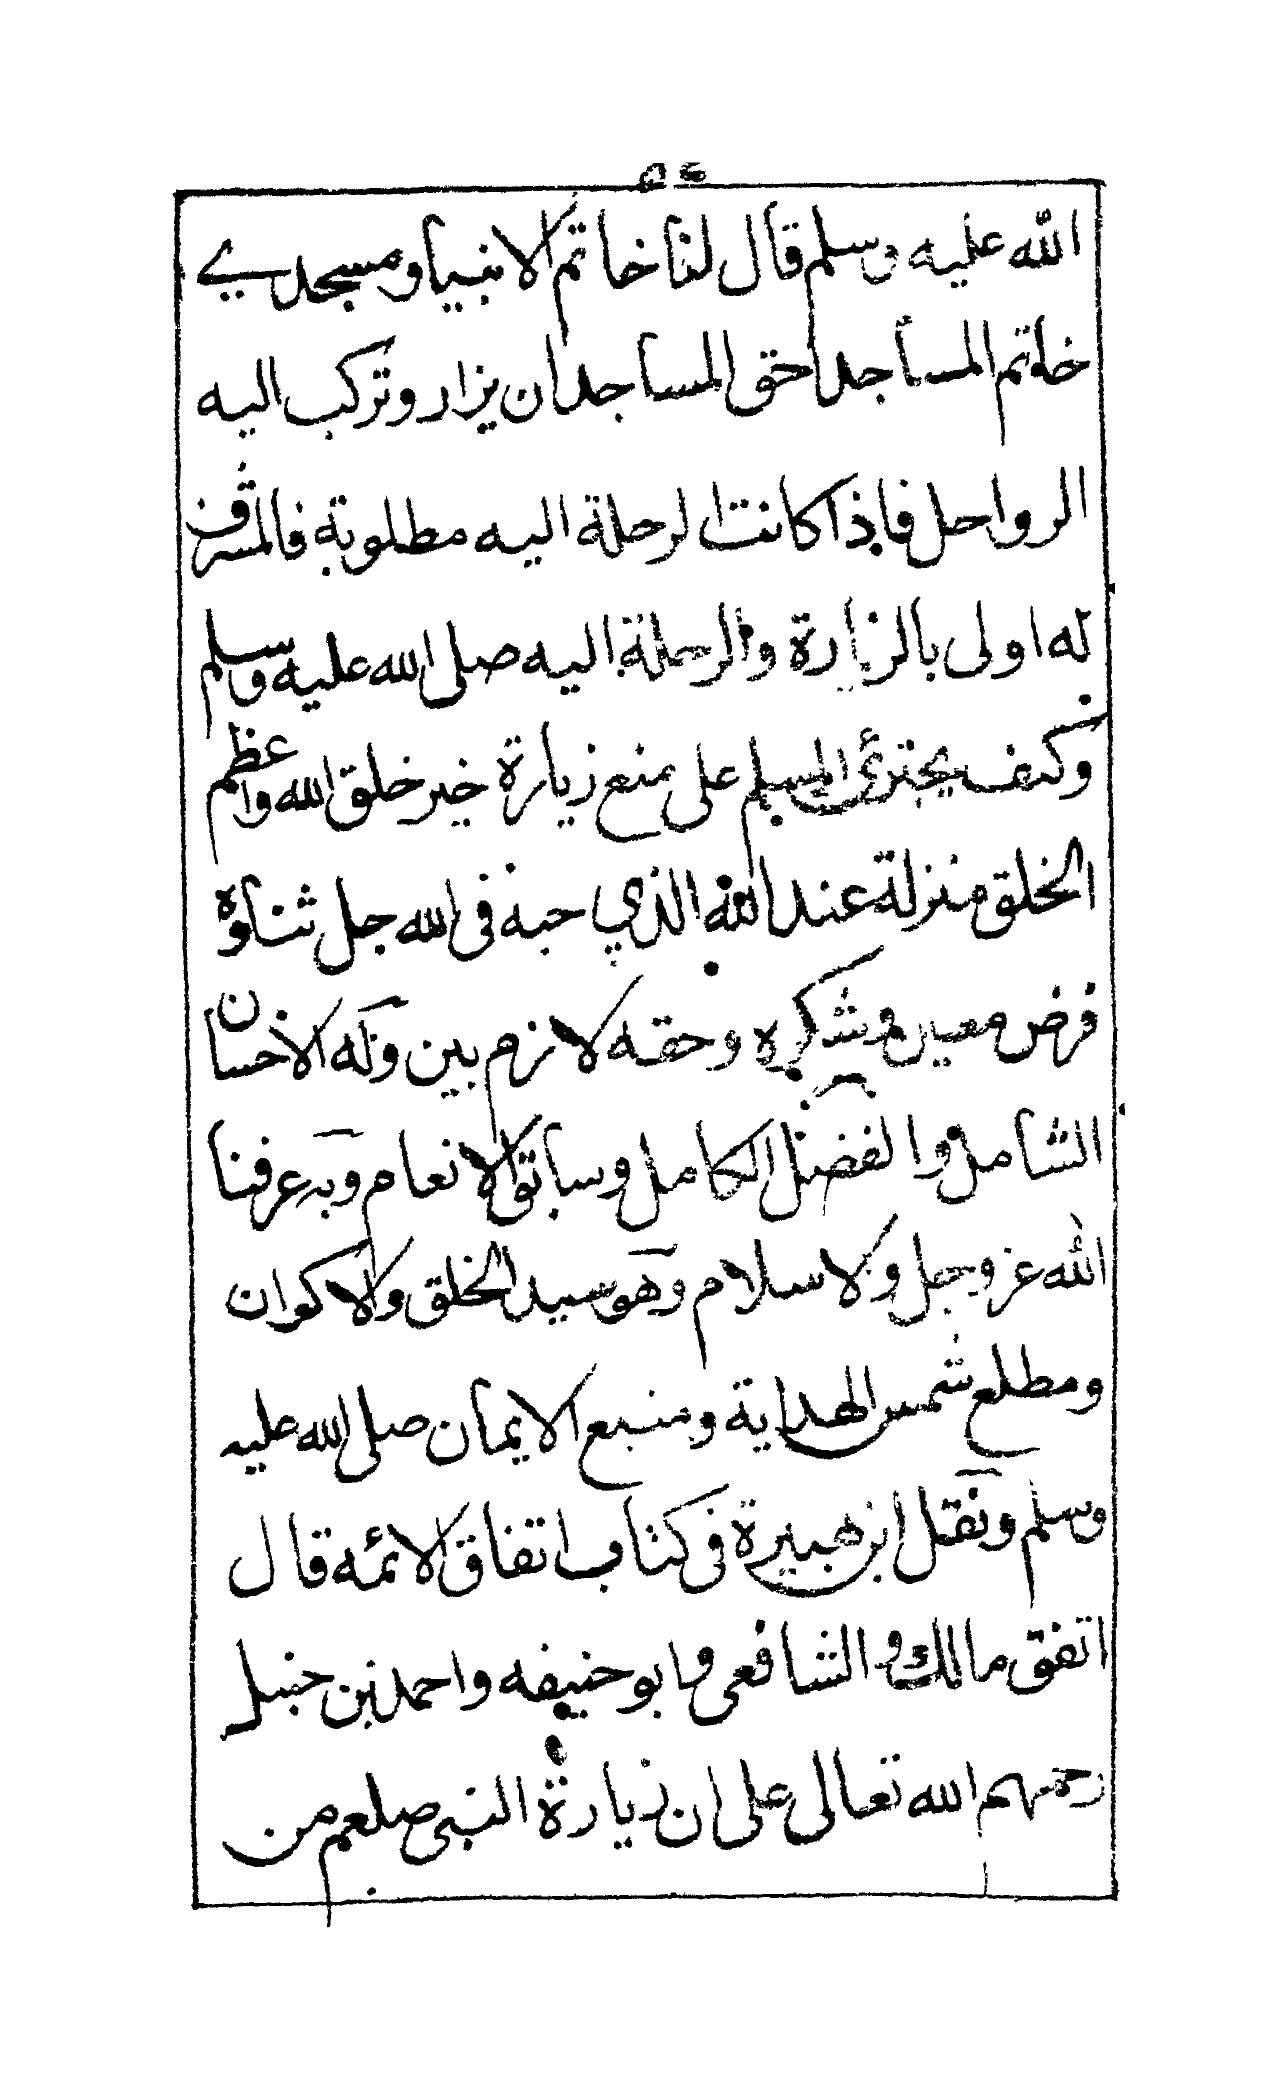 الله عليه وسلم قال لنا خاتم الانبيا ومسجدي
خاتم المساجد احق المساجد ان يزار وتركب اليه
الرواحل فاذا كانت الرحلة اليه مطلوبة فالمشرف
له اولى بالزيارة والرحلة اليه صلى الله عليه وسلم
وكيف يجترئ المسلم على منع زيارة خير خلق الله واعظم
الخلق منزلة عند الله الذي حبه في الله جل ثناوه
فرض معين وشكره وحقه لازم بين وله الاحسان
الشامل والفضل الكامل وسابق الانعام وبه عرفنا
الله عز وجل والاسلام وهو سيد الخلق والاكوان
ومطلع شمس الهداية ومنبع الايمان صلى الله عليه
وسلم ونقل ابن هبيرة في كتاب اتفاق الائمه قال
اتفق مالك والشافعي وابو حنيفه واحمد بن حنبل
رحمهم الله تعالى على ان زيارة النبي صلعم من